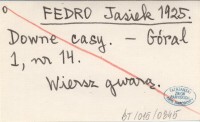 FEDRO Jasiek 1925.
Downe casy. – Góral
1, nr 14.
Wiersz gwarą.
BT/015/0845